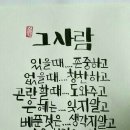 그사람
있을때...존중하고
없을때...칭찬하고
곤란할때...도와주고
은혜는...잊지말고
베푼것은...생각지말고